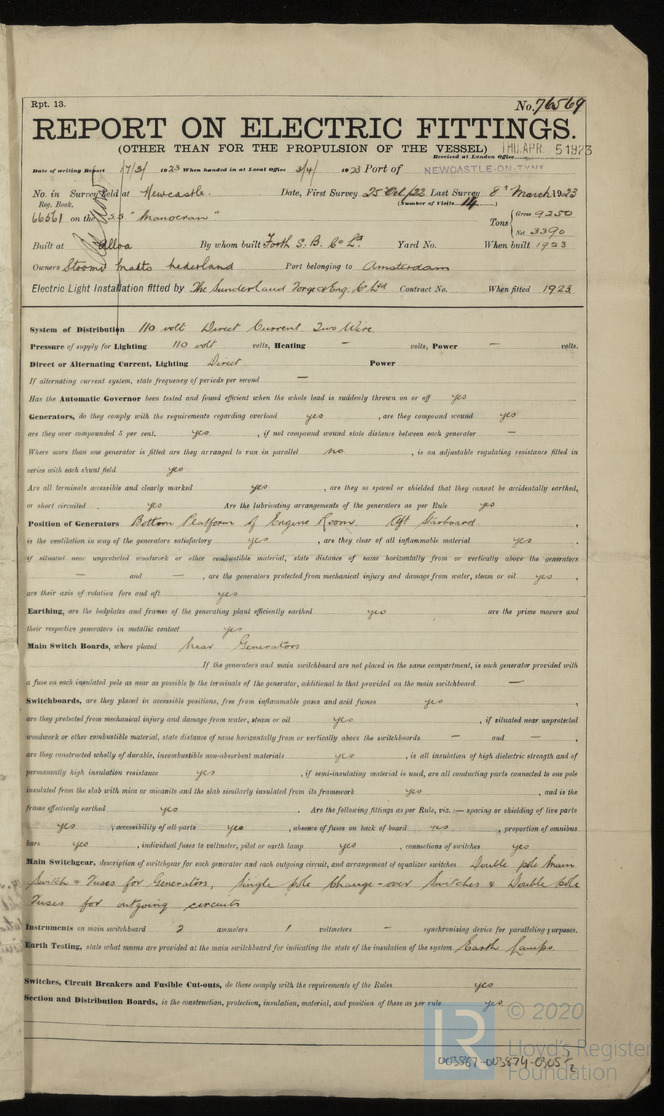 Rpt. 13.
No. 76569
REPORT ON ELECTRIC FITTINGS.
(OTHER THAN FOR THE PROPULSION OF THE VESSEL)
THU. APR. 5 1923
Received at London Office
Date of writing Report 17/3/ 1923 When handed in at Local Office 3/4/ 1923 Port of NEWCASTLE-ON-TYNE
No. in Survey held at Newcastle. Date, First Survey 25 Oct/22 Last Survey 8th March 1923
Reg. Book. (Number of Visits 14)
66561 on the S.S "Manocran" Tons { Gross 9250
Net 3390
Built at Alloa By whom built Forth S. B. Co Ld Yard No. When built 1923
Owners Stoomv Maats Nederland Port belonging to Amsterdam
Electric Light Installation fitted by The Sunderland Forge & Eng. Co Ltd Contract No. When fitted 1923
System of Distribution 110 volt Direct Current. Two Wire
Pressure of supply for Lighting 110 volt volts, Heating — volts, Power — volts.
Direct or Alternating Current, Lighting Direct Power
If alternating current system, state frequency of periods per second —
Has the Automatic Governor been tested and found efficient when the whole load is suddenly thrown on or off yes
Generators, do they comply with the requirements regarding overload yes , are they compound wound yes
are they over compounded 5 per cent. yes , if not compound wound state distance between each generator —
Where more than one generator is fitted are they arranged to run in parallel no , is an adjustable regulating resistance fitted in
series with each shunt field yes
Are all terminals accessible and clearly marked yes , are they so spaced or shielded that they cannot be accidentally earthed,
or short circuited yes Are the lubricating arrangements of the generators as per Rule yes
Position of Generators Bottom Platform of Engine Room. Aft Starboard. ,
is the ventilation in way of the generators satisfactory yes , are they clear of all inflammable material yes .
if situated near unprotected woodwork or other combustible material, state distance of same horizontally from or vertically above the generators
— and — , are the generators protected from mechanical injury and damage from water, steam or oil yes ,
are their axis of rotation fore and aft yes
Earthing, are the bedplates and frames of the generating plant efficiently earthed yes are the prime movers and
their respective generators in metallic contact yes
Main Switch Boards, where placed near Generators
If the generators and main switchboard are not placed in the same compartment, is each generator provided with
a fuse on each insulated pole as near as possible to the terminals of the generator, additional to that provided on the main switchboard —
Switchboards, are they placed in accessible positions, free from inflammable gases and acid fumes yes ,
are they protected from mechanical injury and damage from water, steam or oil yes , if situated near unprotected
woodwork or other combustible material, state distance of same horizontally from or vertically above the switchboards — and — ,
are they constructed wholly of durable, incombustible non-absorbent materials yes , is all insulation of high dielectric strength and of
permanently high insulation resistance yes , if semi-insulating material is used, are all conducting parts connected to one pole
insulated from the slab with mica or micanite and the slab similarly insulated from its framework yes , and is the
frame effectively earthed yes . Are the following fittings as per Rule, viz. :— spacing or shielding of live parts
yes , accessibility of all parts yes , absence of fuses on back of board yes , proportion of omnibus
bars yes , individual fuses to voltmeter, pilot or earth lamp yes , connections of switches yes
Main Switchgear, description of switchgear for each generator and each outgoing circuit, and arrangement of equalizer switches Double pole Main
Switch & Fuses for Generators, Single pole Change-over Switches & Double pole
Fuses for outgoing circuits
Instruments on main switchboard 2 ammeters 1 voltmeters — synchronizing device for paralleling purposes.
Earth Testing, state what means are provided at the main switchboard for indicating the state of the insulation of the system Earth Lamps
Switches, Circuit Breakers and Fusible Cut-outs, do these comply with the requirements of the Rules yes
Section and Distribution Boards, is the construction, protection, insulation, material, and position of these as per rule yes
© 2020
LR
Lloyd's Register
Foundation
003867-003874-0305 1/2